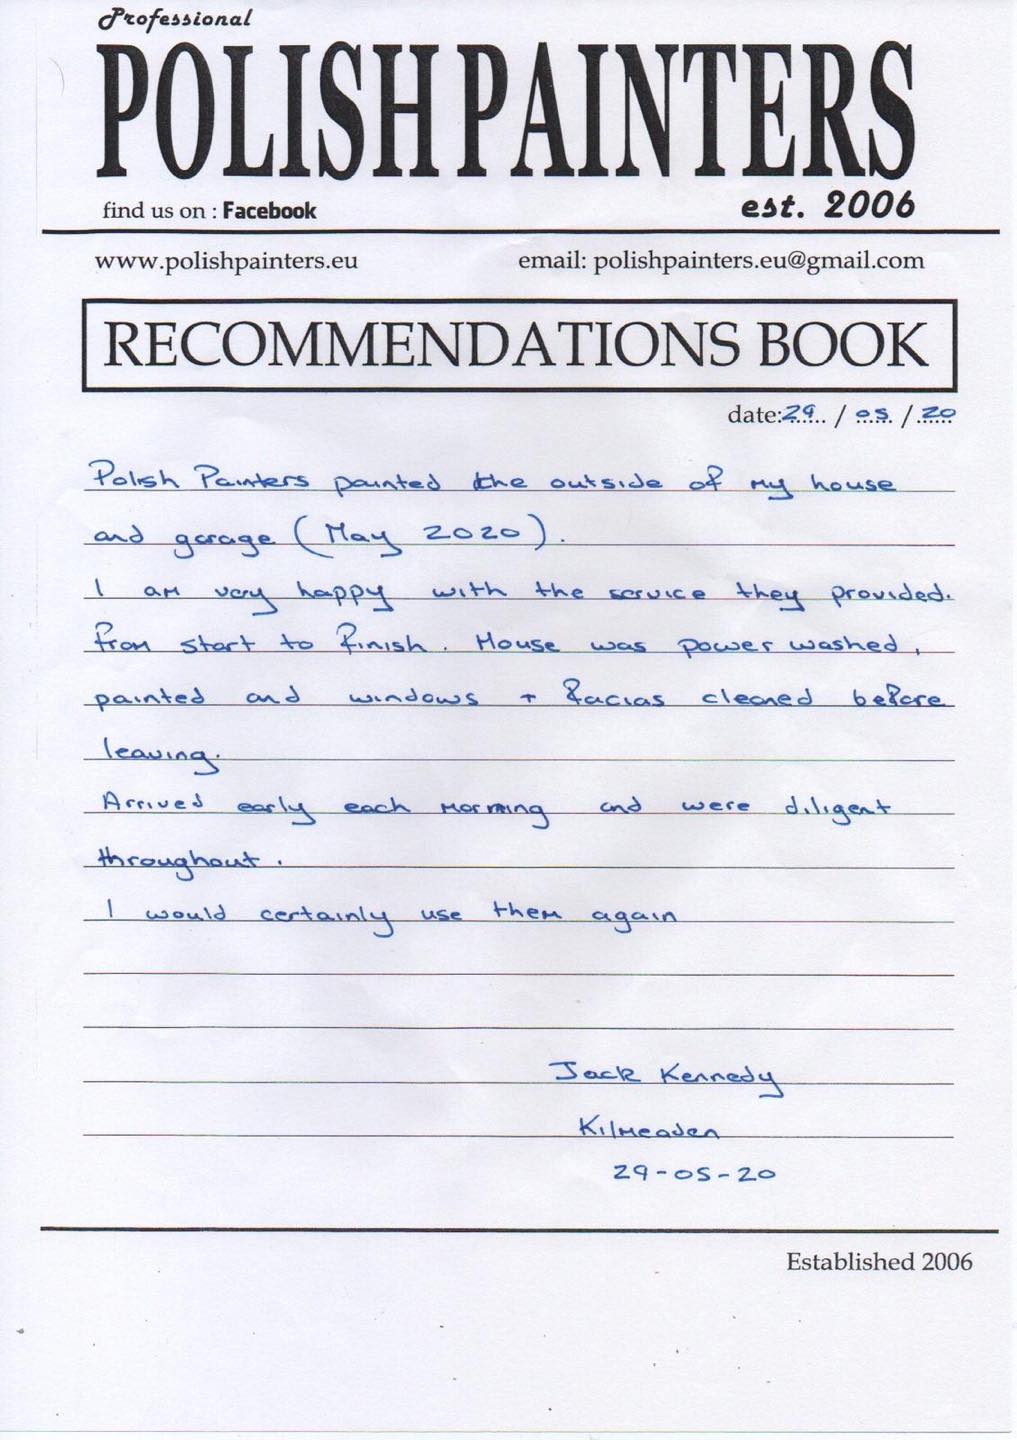 Professional
POLISH PAINTERS
find us on : Facebook
est. 2006
www.polishpainters.eu
email: polishpainters.eu@gmail.com
RECOMMENDATIONS BOOK
date:29 / 05 / 20
Polish Painters painted the outside of my house
and garage (May 2020).
I am very happy with the service they provided.
from start to finish. House was power washed,
painted and windows + facias cleaned before
leaving.
Arrived early each morning and were diligent
throughout.
I would certainly use them again
Jack Kennedy
Kilmeaden
29-05-20
Established 2006